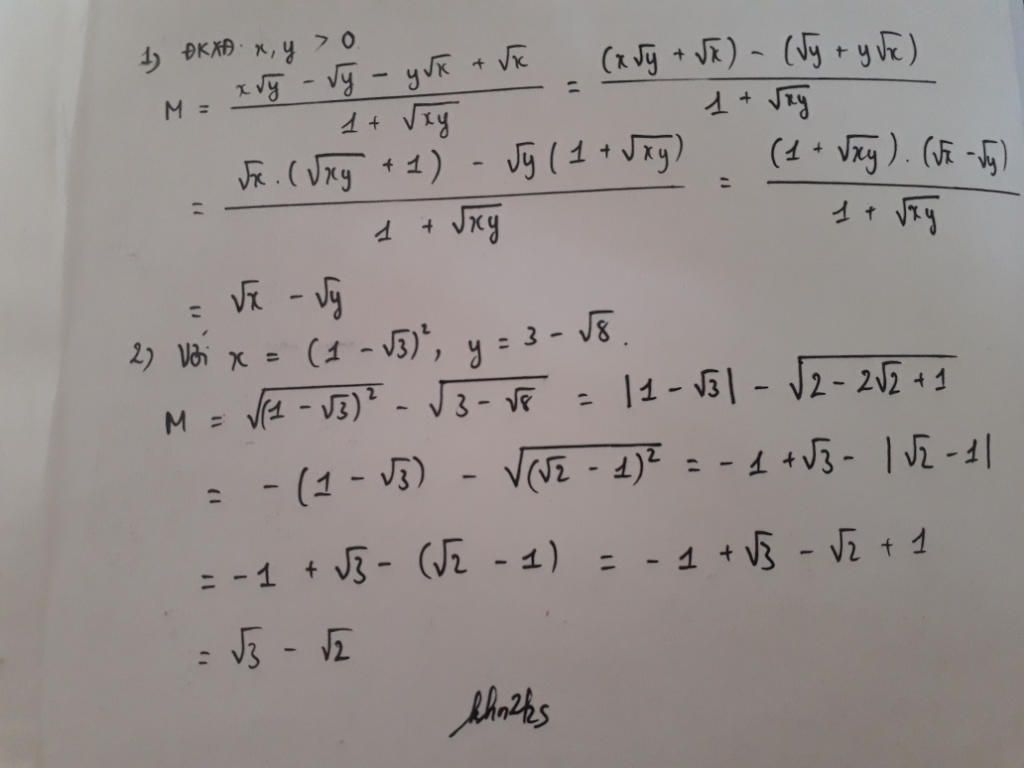 1) ĐKXĐ: x, y > 0
M = (x√y - √y - y√x + √x) / (1 + √xy) = ((x√y + √x) - (√y + y√x)) / (1 + √xy)
= (√x.(√xy + 1) - √y(1 + √xy)) / (1 + √xy) = ((1 + √xy).(√x - √y)) / (1 + √xy)
= √x - √y
2) Với x = (1 - √3)², y = 3 - √8.
M = √((1 - √3)²) - √(3 - √8) = |1 - √3| - √(2 - 2√2 + 1)
= -(1 - √3) - √((√2 - 1)²) = -1 + √3 - |√2 - 1|
= -1 + √3 - (√2 - 1) = -1 + √3 - √2 + 1
= √3 - √2
khn2ks